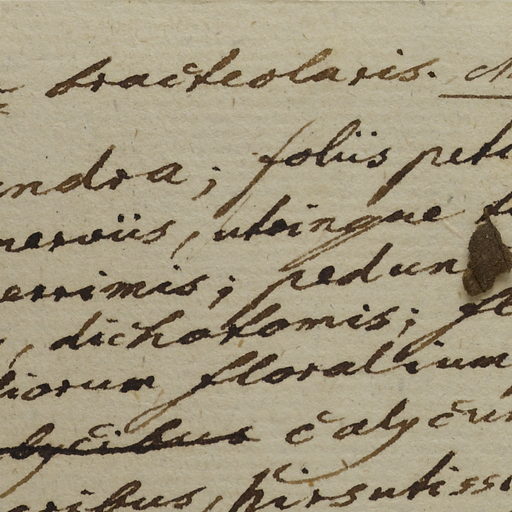 bracteolaris.
andra; foliis peti
nerviis, utringue
errimis; pedun
, dichotomis; fl
liorum floralium
lycibus calycun
aribus, hirsutissi